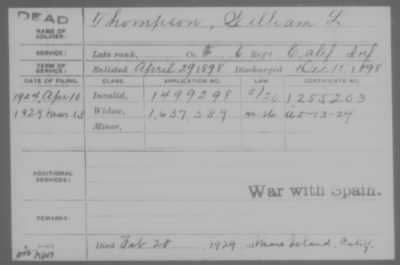 DEAD
NAME OF SOLDIER: Thompson, William L
SERVICE: Late rank, Co. F 6 Reg't Calif Inf
TERM OF SERVICE: Enlisted April 29 1898 Discharged Dec 15, 1898
DATE OF FILING. CLASS. APPLICATION NO. LAW. CERTIFICATE NO.
1924, Apr 10 Invalid, 1499298 1255203
1929 Mar 13 Widow, 1,637,389
Minor,
ADDITIONAL SERVICES:
War with Spain.
REMARKS:
Died Feb 28 1929, Mare Island, Calif.